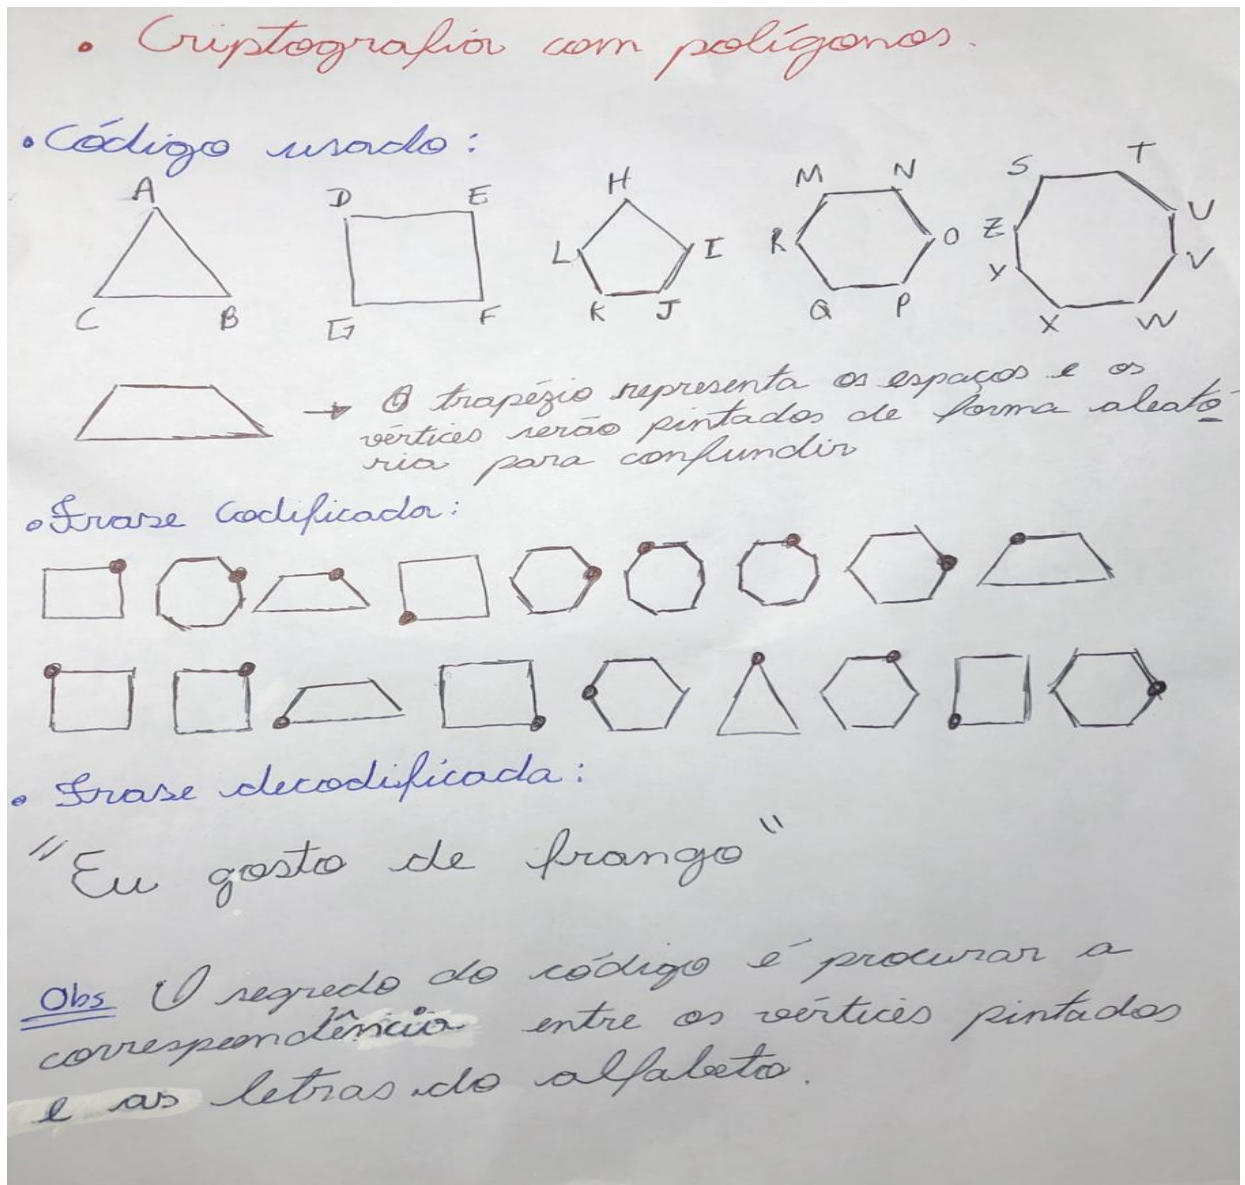 • Criptografia com polígonos.
• Código usado:
A D E H M N S T
L I R O Z U
Y V
C B G F K J Q P X W
→ O trapézio representa os espaços e os
vértices serão pintados de forma aleató
ria para confundir
• Frase codificada:
• Frase decodificada:
"Eu gosto de frango"
Obs O segredo do código é procurar a
correspondência entre os vértices pintados
e as letras do alfabeto.